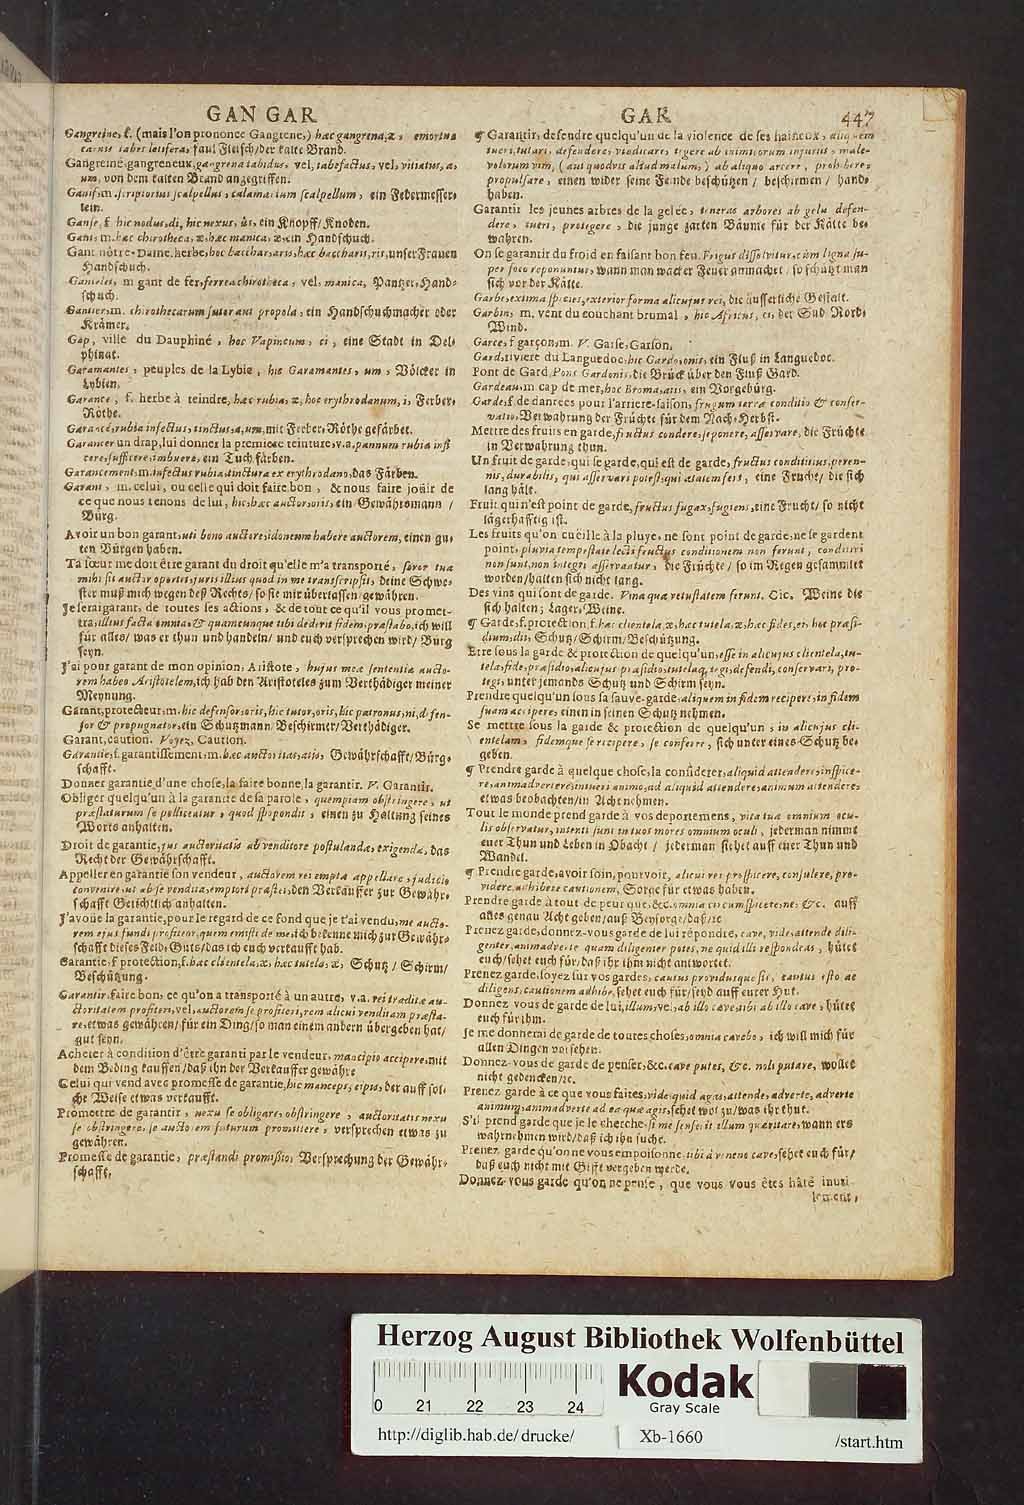 GAN GAR
Gangreine, f. (mais l'on prononce Gangrene,) hæc gangrena, æ, emortua
carnis tabes latifera, faul Fleisch/der kalte Brand.
Gangreiné, gangreneux, gangrena tabidus, vel, tabefactus, vel, vitiatus, a,
um, von dem kalten Brand angegriffen.
Ganif, m. scriptorius scalpellus, calamarium scalpellum, ein Federmesser-
lein.
Ganse, f. hic nodus, di, hic nexus, ûs, ein Knopff/Knoden.
Gant, m. hæc chirotheca, æ, hæc manica, æ, ein Handschuch.
Gant nôtre-Dame, herbe, hoc bacchar, aris, hæc baccharis, ris, unser Frauen
Handschuch.
Gantelet, m gant de fer, ferrea chirotheca, vel, manica, Pantzer-Hand-
schuch.
Gantier, m. chirothecarum sutor aut propola, ein Handschuchmacher oder
Krämer.
Gap, ville du Dauphiné, hoc Vapincum, ci, eine Stadt in Del-
phinat.
Garamantes, peuples de la Lybie, hic Garamantes, um, Völcker in
Lybien.
Garance, f. herbe à teindre, hæc rubia, æ, hoc erythrodanum, i, Ferber-
Röthe.
Garancé, rubia infectus, tinctus, a, um, mit Ferber-Röthe gefärbet.
Garancer un drap, lui donner la premiere teinture, v. a. pannum rubia infi
cere, sufficere, imbuere, ein Tuch färben.
Garancement, m. infectus rubia, tinctura ex erythrodano, das Färben.
Garant, m. celui, ou celle qui doit faire bon, & nous faire joüir de
ce que nous tenons de lui, hic, hæc auctor, oris, ein Gewährsmann/
Bürg.
Avoir un bon garant, uti bono auctore, idoneum habere auctorem, einen gu-
ten Bürgen haben.
Ta sœur me doit être garant du droit qu'elle m'a transporté, soror tua
mihi sit auctor oportet, juris illius quod in me transcripsit, deine Schwe-
ster muß mich wegen deß Rechts/so sie mir übertassen/gewähren.
Je serai garant de toutes ses actions, & de tout ce qu'il vous promet-
tra, facta omnia, & quamcunque tibi dederit fidem, præstabo, ich will
für alles/was er thun und handeln/und euch versprechen wird/Bürg
seyn.
J'ai pour garant de mon opinion, Aristote, hujus meæ sententiæ aucto-
rem habeo Aristotelem, ich hab den Aristoteles zum Verthädiger meiner
Meynung.
Garant, protecteur, m. hic defensor, oris, hic tutor, oris, hic patronus, ni, defen-
sor & propugnator, ein Schutzmann/Beschirmer/Verthädiger.
Garant, caution. Voyez, Caution.
Garantie, f. garantissement, m. hæc auctoritas, atis, Gewährschafft/Bürg-
schafft.
Donner garantie d'une chose, la faire bonne, la garantir. V. Garantir.
Obliger quelqu'un à la garantie de sa parole, quempiam obstringere, ut
præstaturum se polliceatur, quod spopondit, einen zu Haltung seines
Worts anhalten.
Droit de garantie, jus auctoritatis ab venditore postulandæ, exigendæ, das
Recht der Gewährschafft.
Appeller en garantie son vendeur, auctorem rei emptæ appellare, judicio
convenire, ut ab se vendita, emptori præstet, den Verkäuffer zur Gewähr-
schafft Gerichtlich anhalten.
J'avoüe la garantie, pour le regard de ce fond que je t'ai vendu, me aucto-
rem ejus fundi profiteor, quem emisti de me, ich bekenne mich zur Gewähr-
schafft dieses Feld-Guts/das ich euch verkaufft hab.
Garantie, f. protection, f. hæc clientela, æ, hæc tutela, æ, Schutz/Schirm/
Beschützung.
Garantir, faire bon, ce qu'on a transporté à un autre, v. a. rei traditæ au-
ctoritatem profiteri, vel, auctorem se profiteri, rem alicui venditam præsta-
re, etwas gewähren/für ein Ding/so man einem andern übergeben hat/
gut seyn.
Acheter à condition d'être garanti par le vendeur, mancipio accipere, mit
dem Beding kauffen/daß ihn der Verkäuffer gewähre
Celui qui vend avec promesse de garantie, hic manceps, cipis, der auff sol-
che Weise etwas verkaufft.
Promettre de garantir, nexu se obligare, obstringere, auctoritatis nexu
se obstringere, se auctorem futurum promittere, versprechen etwas zu
gewähren.
Promesse de garantie, præstandi promissio, Versprechung der Gewähr-
schafft.
GAR
447
¶ Garantir, defendre quelqu'un de la violence de ses haineux, aliquem
tueri, tutari, defendere, vindicare, tegere ab inimicorum injuriis, male-
volorum vim, (aut quodvis aliud malum,) ab aliquo arcere, prohibere,
propulsare, einen wider seine Feinde beschützen/beschirmen/hand-
haben.
Garantir les jeunes arbres de la gelée, teneras arbores ab gelu defen-
dere, tueri, protegere, die junge zarten Bäume für der Kälte be-
wahren.
On se garantit du froid en faisant bon feu, Frigus dissolvitur, cùm ligna su-
per foco reponuntur, wann man wacker Feuer anmachet/so schützt man
sich vor der Kälte.
Garbe, extima species, exterior forma alicujus rei, die äusserliche Gestalt.
Garbin, m. vent du couchant brumal, hic Africus, ci, der Sud Nord-
Wind.
Garce, f. garçon, m. V. Garse, Garson.
Gard, riviere du Languedoc, hic Gardo, onis, ein Fluß in Languedoc.
Pont de Gard, Pons Gardonis, die Brück über den Fluß Gard.
Gardeau, m cap de mer, hoc Broma, atis, ein Vorgebürg.
Garde, f. de danrées pour l'arriere-saison, frugum terræ conditio & conser-
vatio, Verwahrung der Früchte für dem Nach-Herbst.
Mettre des fruits en garde, fructus condere, seponere, asservare, die Früchte
in Verwahrung thun.
Un fruit de garde, qui se garde, qui est de garde, fructus conditivus, peren-
nis, durabilis, qui asservari potest, qui ætatem fert, eine Frucht/die sich
lang hält.
Fruit qui n'est point de garde, fructus fugax, fugiens, eine Frucht/so nicht
lägerhafftig ist.
Les fruits qu'on cuëille à la pluye, ne sont point de garde, ne se gardent
point, pluvia tempestate lecti fructus conditionem non ferunt, conditivi
non sunt, non integri asservantur, die Früchte/so im Regen gesammlet
worden/halten sich nicht lang.
Des vins qui sont de garde. Vina quæ vetustatem ferunt. Cic. Weine die
sich halten; Lager-Weine.
¶ Garde, f. protection, f. hæc clientela, æ, hæc tutela, æ, hæc fides, ei, hoc præsi-
dium, dii, Schutz/Schirm/Beschützung.
Etre sous la garde & protection de quelqu'un, esse in alicujus clientela, tu-
tela, fide, præsidio, alicujus præsidio, tutelaq; tegi, defendi, conservari, pro-
tegi, unter jemands Schutz und Schirm seyn.
Prendre quelqu'un sous sa sauve-garde, aliquem in fidem recipere, in fidem
suam accipere, einen in seinen Schutz nehmen.
Se mettre sous la garde & protection de quelqu'un, in alicujus cli-
entelam, fidemque se recipere, se conferre, sich unter eines Schutz be-
geben.
¶ Prendre garde à quelque chose, la considerer, aliquid attendere, inspice-
re, animadvertere, intueri animo, ad aliquid attendere, animum attendere,
etwas beobachten/in Acht nehmen.
Tout le monde prend garde à vos deportemens, vita tua omnium ocu-
lis observatur, intenti sunt in tuos mores omnium oculi, jederman nimmt
euer Thun und Leben in Obacht/jederman siehet auff euer Thun und
Wandel.
¶ Prendre garde, avoir soin, pourvoir, alicui rei prospicere, consulere, pro-
videre, adhibere cautionem, Sorge für etwas haben.
Prendre garde à tout de peur que, &c. omnia circumspicere, ne: &c. auff
alles genau Acht geben/auß Beysorge/daß/ꝛc
Prenez garde, donnez-vous garde de lui répondre, cave, vide, attende dili-
genter, animadverte quam diligenter potes, ne quid illi respondeas, hütet
euch/sehet euch für/daß ihr ihm nicht antwortet.
Prenez garde, soyez sur vos gardes, cautus providusque sis, cautus esto ac
diligens, cautionem adhibe, sehet euch für/seyd auff eurer Hut.
Donnez vous de garde de lui, illum, vel, ab illo cave, tibi ab illo cave, hütet
euch für ihm.
Je me donnerai de garde de toutes choses, omnia cavebo, ich will mich für
allen Dingen vorsehen.
Donnez-vous de garde de penser, &c. cave putes, &c. noli putare, wollet
nicht gedencken/ꝛc.
Prenez garde à ce que vous faites, vide quid agas, attende, adverte, adverte
animum, animadverte ad ea quæ agis, sehet wol zu/was ihr thut.
S'il prend garde que je le cherche, si me senserit illum quæritare, wann ers
wahrnehmen wird/daß ich ihn suche.
Prenez garde qu'on ne vous empoisonne, tibi à veneno cave, sehet euch für/
daß euch nicht mit Gifft vergeben werde.
Donnez-vous garde qu'on ne pense, que vous vous êtes hâté inuti-
lement,
Herzog August Bibliothek Wolfenbüttel
0 21 22 23 24
Kodak
Gray Scale
http://diglib.hab.de/drucke/
Xb-1660
/start.htm